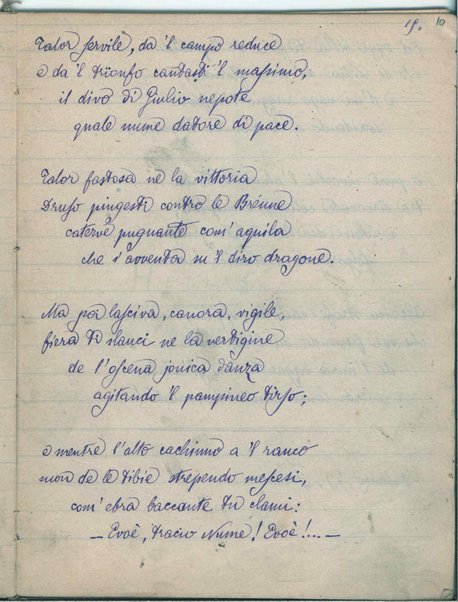 15. 10
Talor servile, da 'l campo reduce
e da 'l trionfo cantasti 'l massimo,
il divo di Giulio nepote
quale nume datore di pace.
Talor fastosa ne la vittoria
Druso pingesti contro le Brenne
caterve pugnante com' aquila
che s' avventa su 'l diro dragone.
Ma poi lasciva, canora, vigile,
fiera ti slanci ne la vertigine
de l' oscena jonica danza
agitando 'l pampineo tirso;
e mentre l' alto cachinno a 'l rauco
suon de le tibie strependo mescesi,
com' ebra baccante tu clami:
— Evoè, tracio Nume! Evoè!.... —